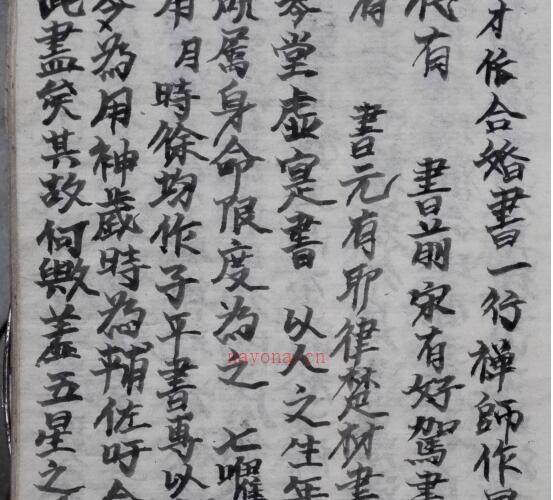 才依合婚書一行禅師作
有 書前宋有好駕書
書元有耶律楚材書
琴堂虛寔書 以人之生年
属身命限度為之 七曜
用月時餘均作子平書專以
為用神歲時為輔佐吁
此盡矣其故何歟盖五星之
nayona.cn